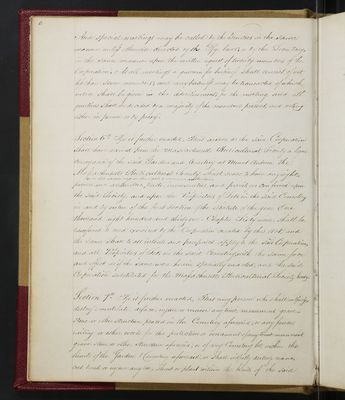 6
And Special meetings may be called by the Trustees in the same
manner unless otherwise directed by the By laws, or by the Secretary
in the same manner upon the written request of twenty members of the
Corporation. At all meetings a quorum for business shall consist of not
less than seven members, and any business may be transacted, of which
notice shall be given in the advertisement, for the meeting, and all
questions shall be decided by a majority of the members present and voting
either in person or by proxy.
Section 6th Be it further enacted, That as soon as the said Corporation
shall have received from the Massachusetts Horticultural Society a legal
conveyance of the said Garden and Cemetery at Mount Auburn, the
Massachusetts Horticultural Society shall cease to have any rights,
powers and authorities, duties, immunities, and privileges conferred upon
the said Society, and upon the Proprietors of lots in the said Cemetery
in and by virtue of the first section of the statute of the year One
thousand eight hundred and thirty one, Chapter Sixty nine, shall be
transferred to and exercised by the Corporation created by this act; and
the same shall to all intents and purposes apply to the said Corporation,
and all Proprietors of lots in the said Cemetery with the same force
and effect as if the same were herein specially enacted, and the said
Corporation substituted for the Massachusetts Horticultural Society thereby.
Section 7th Be it further enacted, That any person who shall wilfully
destroy, mutilate, deface, injure or remove any tomb, monument, grave
stone or other structure placed in the Cemetery aforesaid, or any fence,
railing or other work for the protection or ornament of any tomb, monument,
grave stone or other structure aforesaid, or of any Cemetery lot within the
limits of the Garden & Cemetery aforesaid, or shall wilfully destroy, remove,
cut, break or injure any tree, shrub or plant within the limits of the said